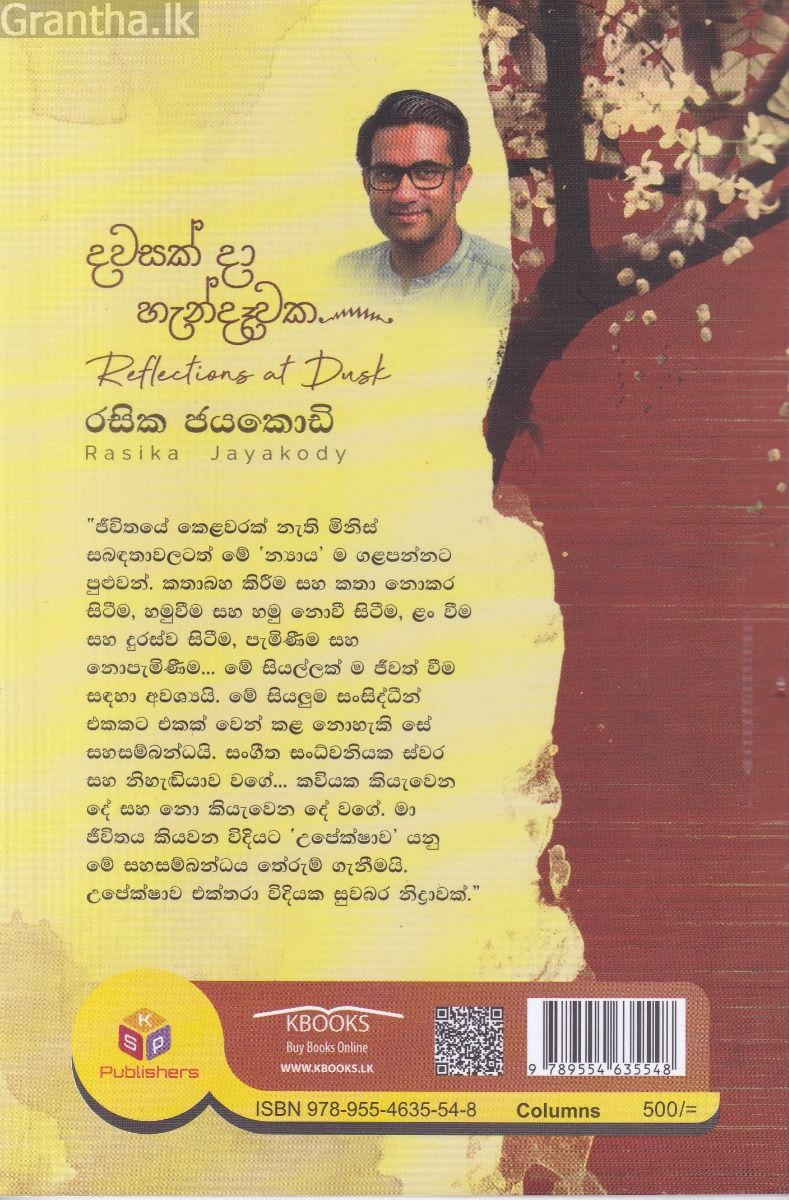 Grantha.lk
දවසක් දා
හැන්දෑවක
Reflections at Dusk
රසික ජයකොඩි
Rasika Jayakody
"ජීවිතයේ කෙළවරක් නැති මිනිස්
සබඳතාවලටත් මේ 'න්‍යාය' ම ගළපන්නට
පුළුවන්. කතාබහ කිරීම සහ කතා නොකර
සිටීම, හමුවීම සහ හමු නොවී සිටීම, ළං වීම
සහ දුරස්ව සිටීම, පැමිණීම සහ
නොපැමිණීම... මේ සියල්ලක් ම ජීවත් වීම
සඳහා අවශ්‍යයි. මේ සියලුම සංසිද්ධීන්
එකකට එකක් වෙන් කළ නොහැකි සේ
සහසම්බන්ධයි. සංගීත සංධ්වනියක ස්වර
සහ නිහැඬියාව වගේ... කවියක කියැවෙන
දේ සහ නො කියැවෙන දේ වගේ. මා
ජීවිතය කියවන විදියට 'උපේක්ෂාව' යනු
මේ සහසම්බන්ධය තේරුම් ගැනීමයි.
උපේක්ෂාව එක්තරා විදියක සුවබර නිද්‍රාවක්."
K
S P
Publishers
KBOOKS
Buy Books Online
WWW.KBOOKS.LK
9 789554 635548
ISBN 978-955-4635-54-8 Columns 500/=